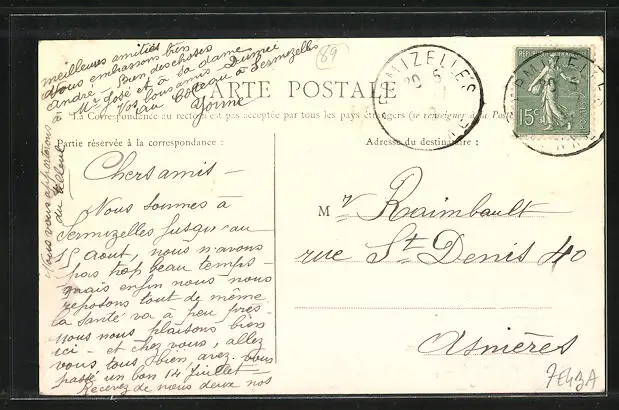 meilleures amitiés
Nous embrassons bien
André – Bien des choses
à Mr José et à la dame
Vos bons amis
au Coteau à Sermizelles
Yonne
89
CARTE POSTALE
La Correspondance au recto n'est pas acceptée par tous les pays étrangers (se renseigner à la Poste
Partie réservée à la correspondance :
Adresse du destinataire :
SERMIZELLES
20
YONNE
15c
SERMIZELLES
YONNE
Nous vous apporterons
du
Chers amis –
Nous sommes à
Sermizelles jusqu'au
15 aout, nous n'avons
pas trop beau temps –
mais enfin nous nous
reposons tout de même
la santé va à peu près –
nous nous plaisons bien
ici – et chez vous, allez
vous tous bien, avez-vous
passé un bon 14 juillet –
Recevez de nous deux nos
Mr Raimbault
rue St Denis 40
Asnières
7E43A